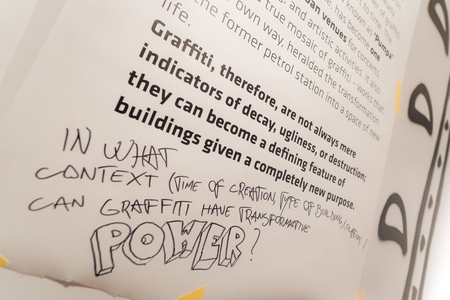 Pumpa"
has become one
venues for concerts,
and artistic activities. It also
true mosaic of graffiti – works that
own way, heralded the transformation
the former petrol station into a space of new
life.
Graffiti, therefore, are not always mere
indicators of decay, ugliness, or destruction;
they can become a defining feature of
buildings given a completely new purpose.
IN WHAT
CONTEXT (TIME OF CREATION, TYPE OF BUILDING,
CAN GRAFFITI HAVE TRANSFORMATIVE
POWER?